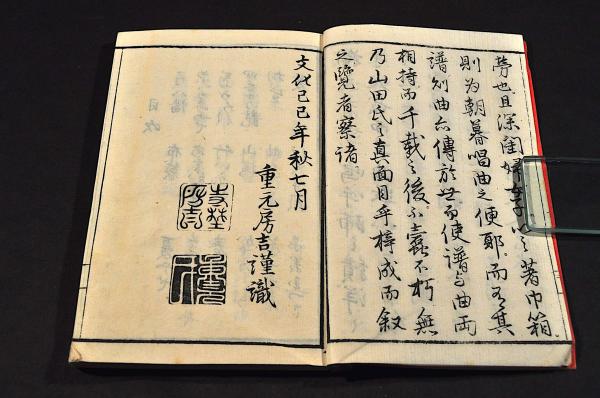 旁也且深閨婦女以之著巾箱
則為朝暮唱曲之便耶而若其
譜別曲亦傳於世而使譜与曲両
相持而千載之後不蠹不朽無
乃山田氏之真面目乎梓成而叙
之覽者察諸
文化己巳年秋七月
重元房吉謹識